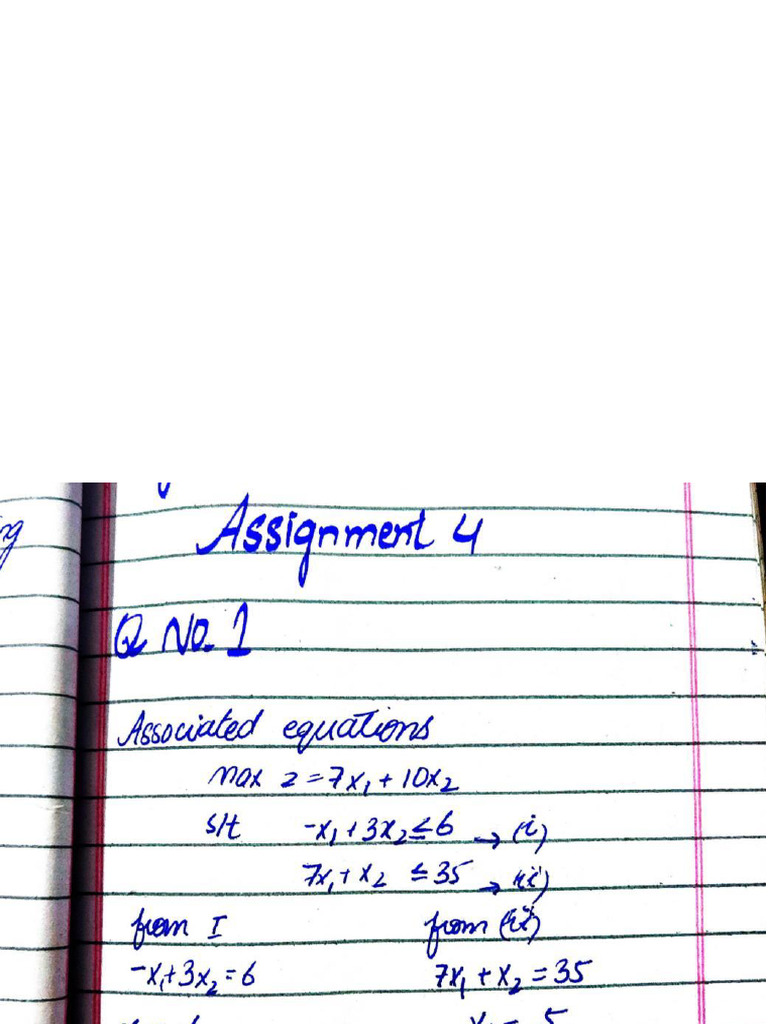 Assignment 4
Q No. 1
Associated equations
max z = 7x₁ + 10x₂
s/t -x₁ + 3x₂ ≤ 6 → (i)
7x₁ + x₂ ≤ 35 → (ii)
from I from (ii)
-x₁ + 3x₂ = 6 7x₁ + x₂ = 35